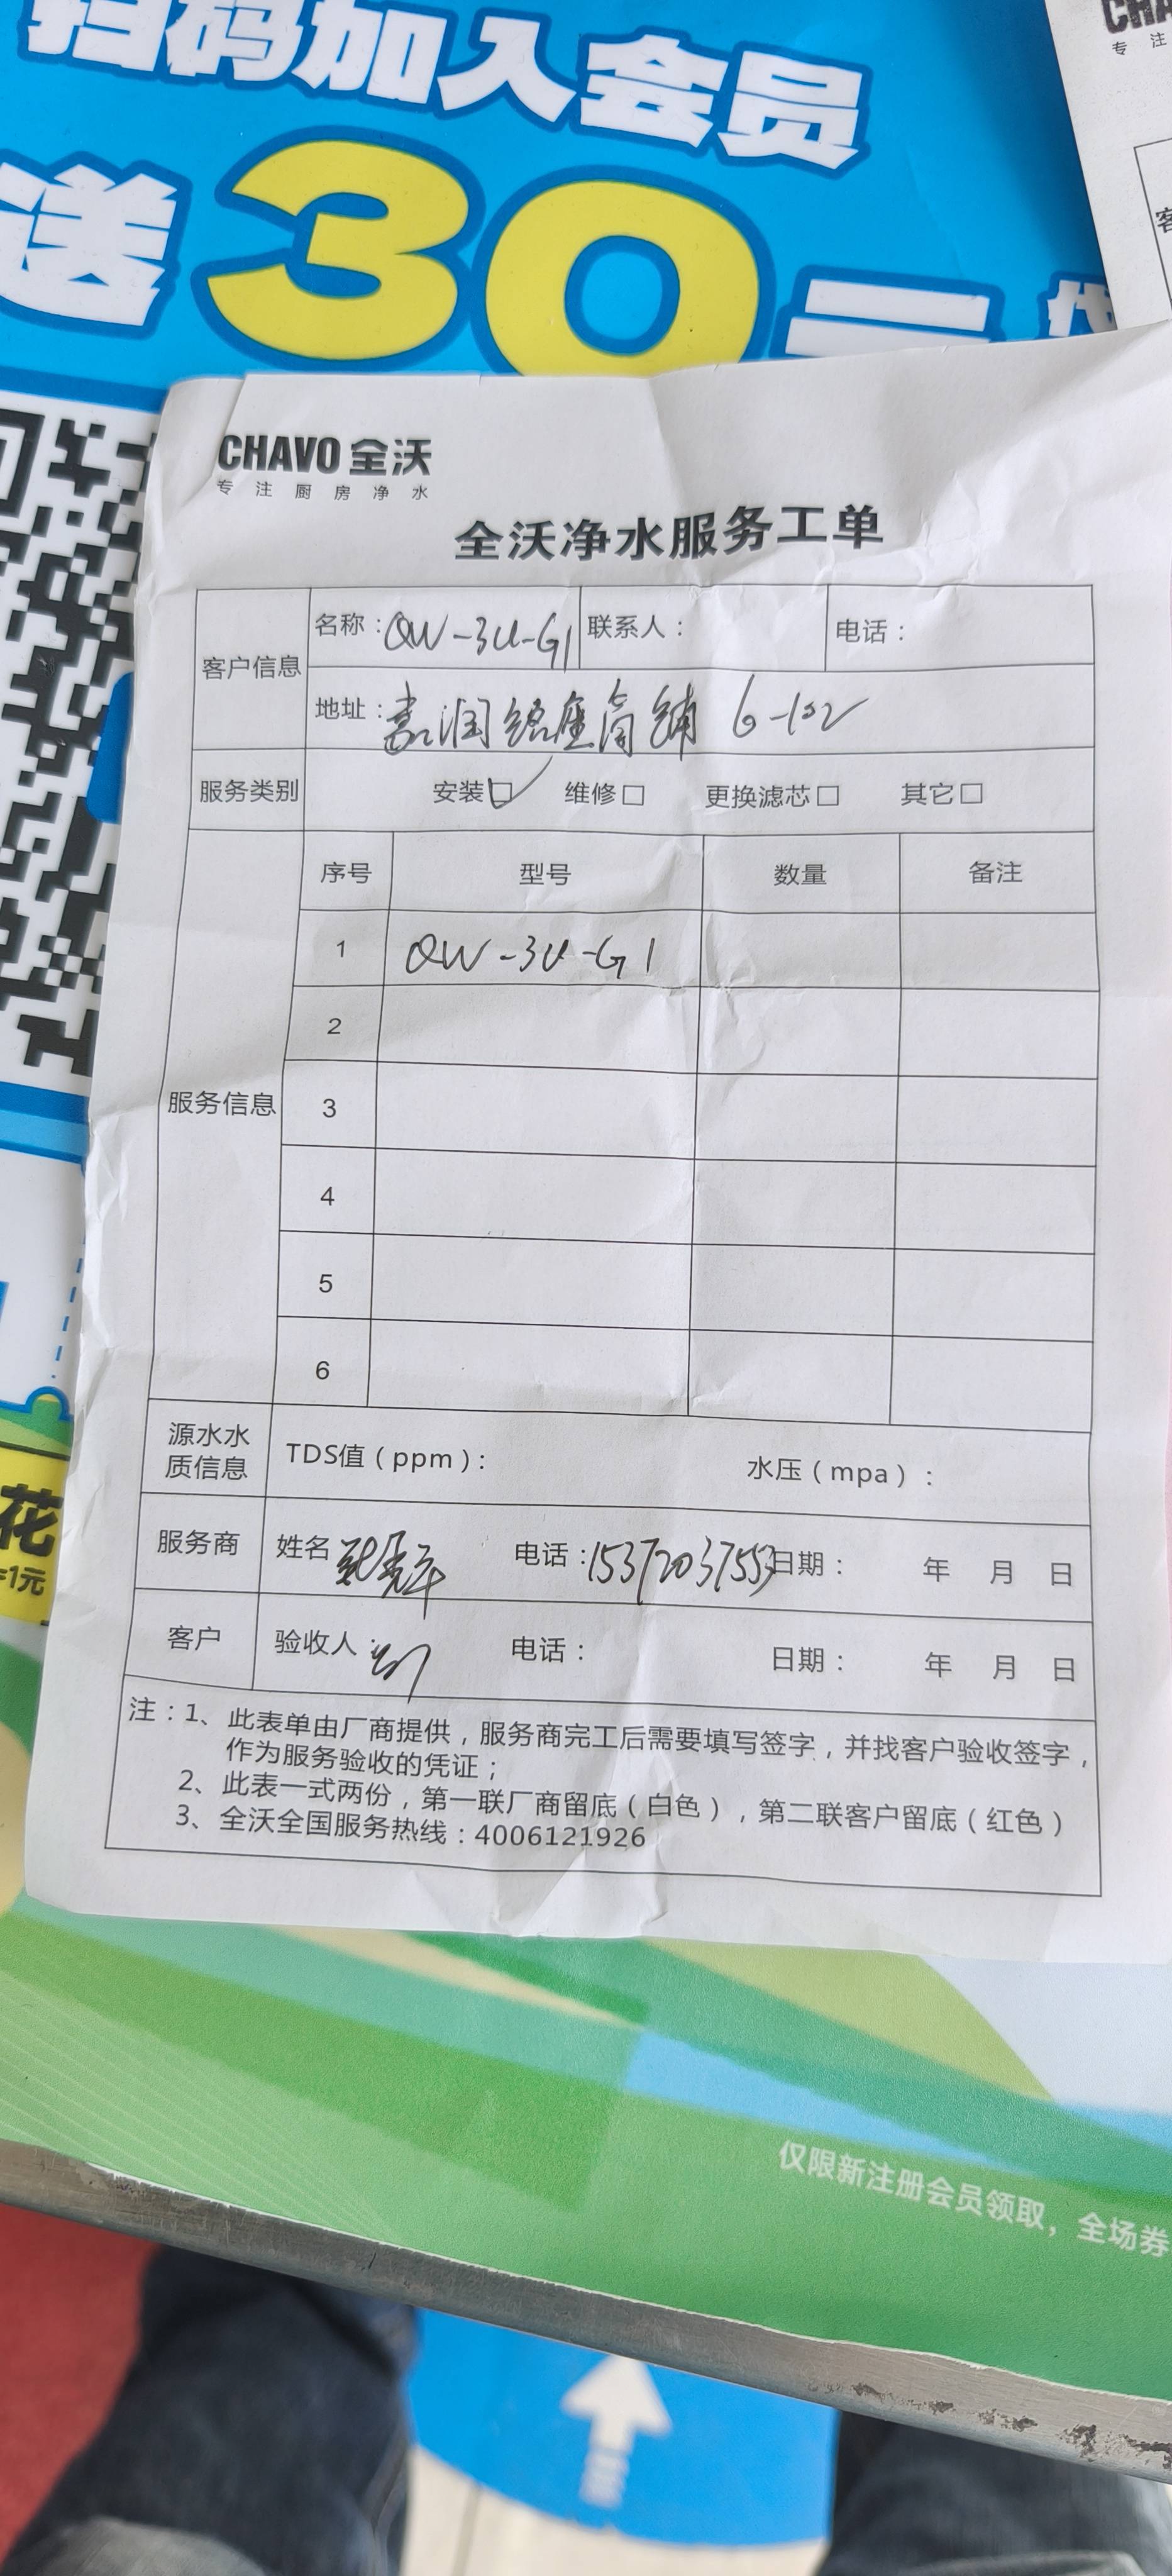 扫码加入会员
送30元
CHAVO 全沃
专注厨房净水
全沃净水服务工单
客户信息
名称：QW-3U-G1 联系人： 电话：
地址：嘉润铭座商铺 6-102
服务类别 安装☑ 维修□ 更换滤芯□ 其它□
服务信息
序号 型号 数量 备注
1 QW-3U-G1
2
3
4
5
6
源水水质信息 TDS值（ppm）： 水压（mpa）：
服务商 姓名 电话：15372037553 日期： 年 月 日
客户 验收人： 电话： 日期： 年 月 日
注：1、此表单由厂商提供，服务商完工后需要填写签字，并找客户验收签字，
作为服务验收的凭证；
2、此表一式两份，第一联厂商留底（白色），第二联客户留底（红色）
3、全沃全国服务热线：4006121926
花
1元
仅限新注册会员领取，全场券